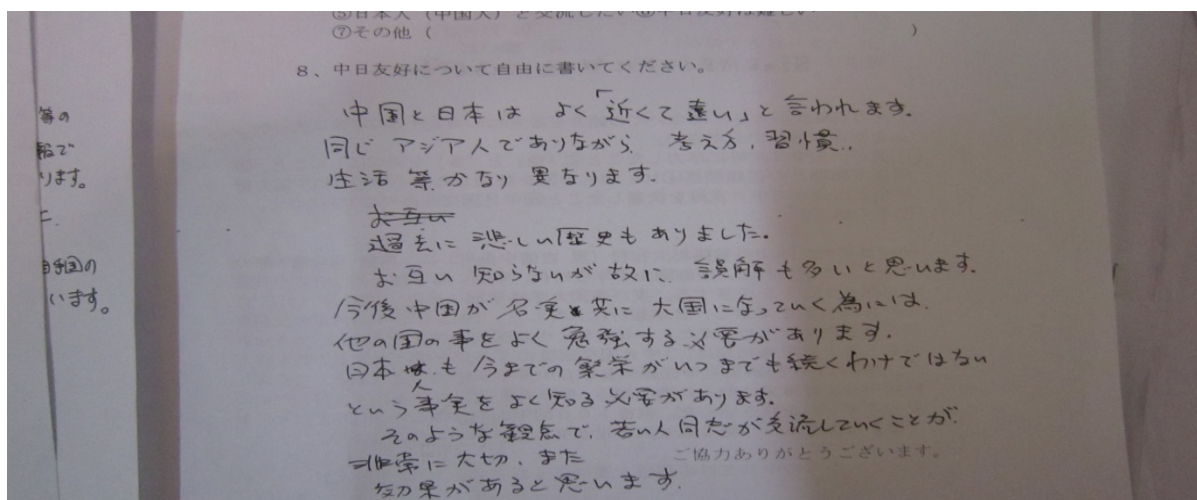 ⑤日本人（中国人）と交流したい⑥中日友好は難しい
⑦その他（　　　　　　　　　　　　　　　　）
8、中日友好について自由に書いてください。
中国と日本は よく「近くて遠い」と言われます。
同じ アジア人でありながら、考え方、習慣、
生活 等かなり 異なります。
お互い
過去に 悲しい歴史もありました。
お互い 知らないが故に、誤解も多いと思います。
今後 中国が 名実共に 大国になっていく為には、
他の国の事をよく勉強する必要があります。
日本人も 今までの繁栄がいつまでも続くわけではない
という事実をよく知る必要があります。
そのような観念で、若い人同志が交流していくことが
非常に大切、また
ご協力ありがとうございます。
効果があると思います。
等の
報で
ります。
に
自国の
います。